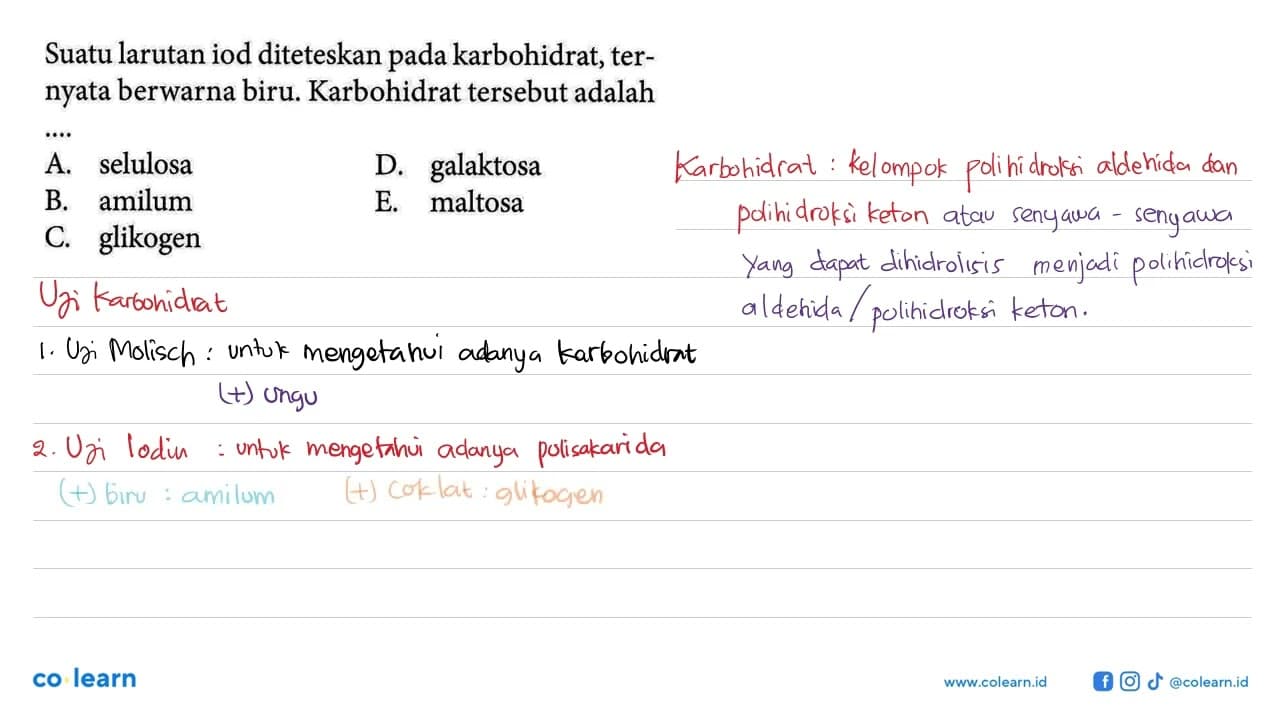 Suatu larutan iod diteteskan pada karbohidrat, ter-
nyata berwarna biru. Karbohidrat tersebut adalah
....
A. selulosa
B. amilum
C. glikogen
D. galaktosa
E. maltosa
Karbohidrat : kelompok polihidroksi aldehida dan
polihidroksi keton atau senyawa - senyawa
yang dapat dihidrolisis menjadi polihidroksi
aldehida / polihidroksi keton.
Uji Karbohidrat
1. Uji Molisch : untuk mengetahui adanya karbohidrat
(+) ungu
2. Uji Iodin : untuk mengetahui adanya polisakarida
(+) biru : amilum (+) coklat : glikogen
co learn
www.colearn.id @colearn.id